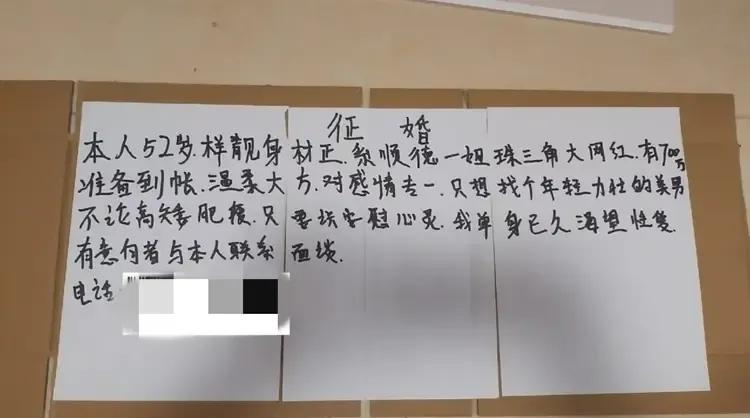 征 婚
本人52岁.样靓身材正.系顺德一姐珠三角大网红.有700万
准备到帐.温柔大方.对感情专一.只想找个年轻力壮的美男
不论高矮肥瘦.只要安慰心灵.我单身已久渴望性
有意向者与本人联系面谈.
电话